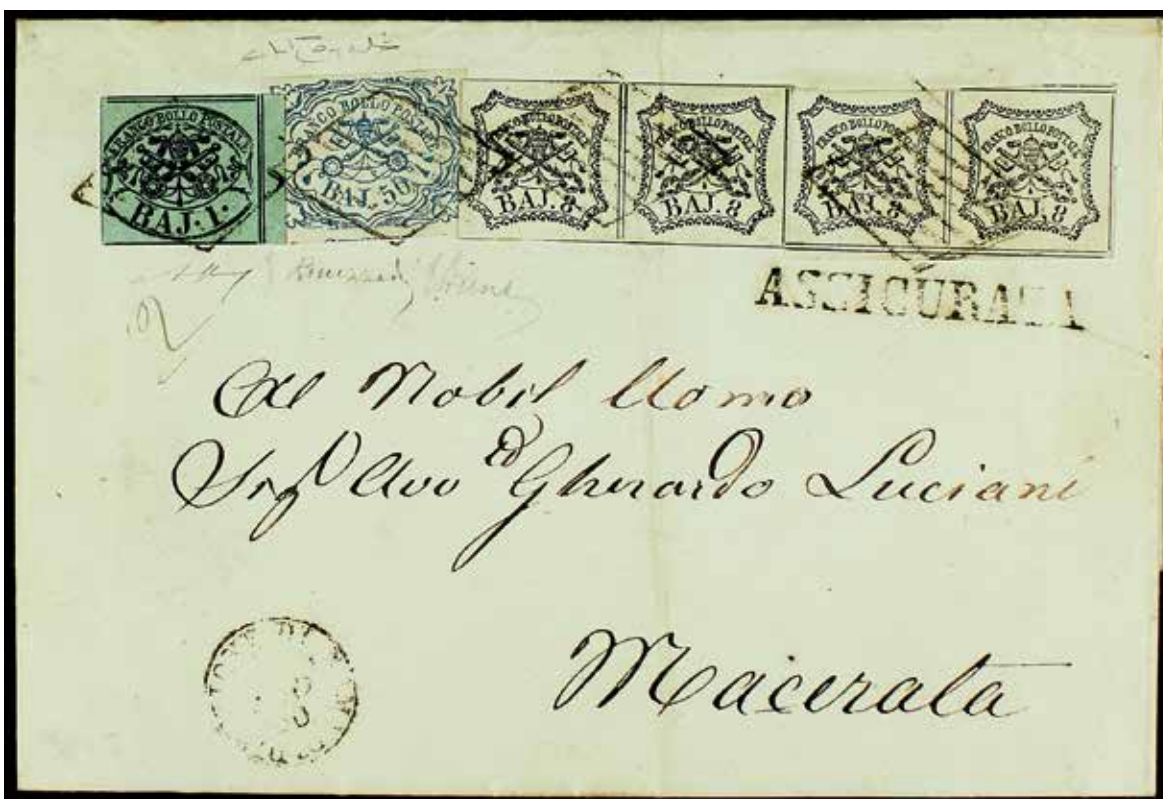 FRANCO BOLLO POSTALE
BAJ. 1.
FRANCO BOLLO POSTALE
BAJ. 50
FRANCO BOLLO POSTALE
BAJ. 8
FRANCO BOLLO POSTALE
BAJ. 8
FRANCO BOLLO POSTALE
BAJ. 8
FRANCO BOLLO POSTALE
BAJ. 8
ASSICURATA
Al Nobil Uomo
Sigr Avv Gherardo Luciani
Macerata